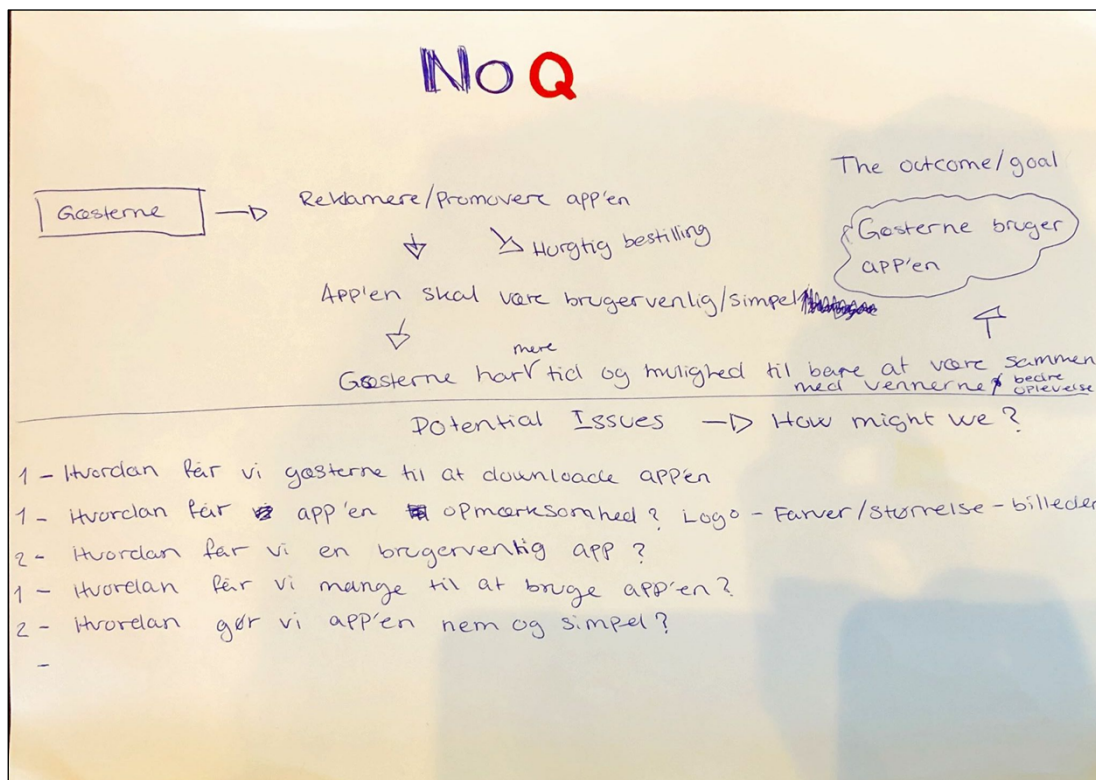 No Q
The outcome/goal
Gæsterne
Reklamere/Promovere app'en
Hurgtig bestilling
Gæsterne bruger
app'en
App'en skal være brugervenlig/simpel
mere
Gæsterne har tid og mulighed til bare at være sammen
med vennerne / bedre
oplevelse
Potential Issues → How might we?
1 - Hvordan får vi gæsterne til at downloade app'en
1 - Hvordan får app'en opmærksomhed? Logo - Farver/størrelse - billeder
2 - Hvordan får vi en brugervenlig app?
1 - Hvordan får vi mange til at bruge app'en?
2 - Hvordan gør vi app'en nem og simpel?
-